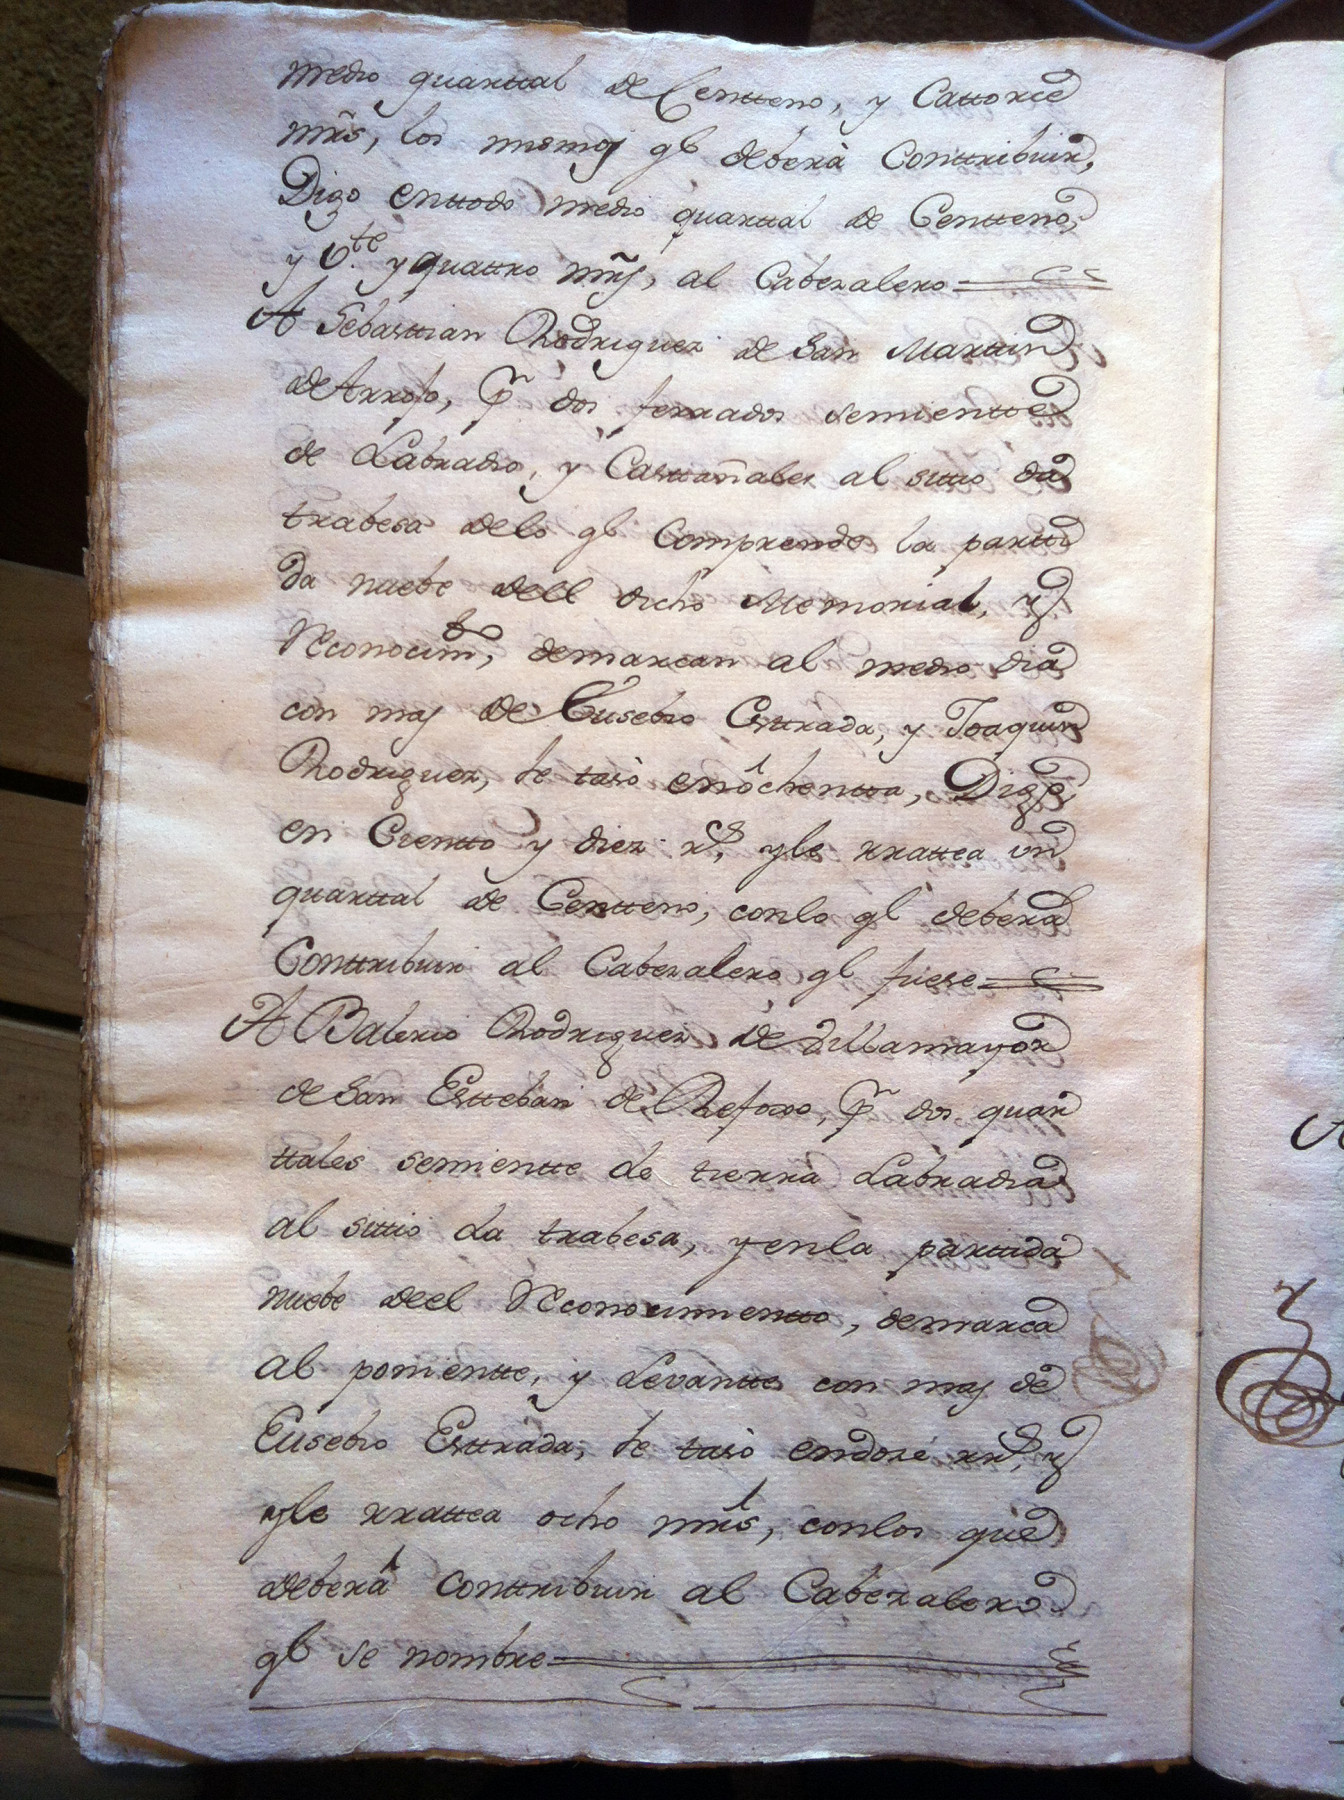 medio quarttal de Centteno, y Cattorce
mrs, los mismos qe deberà Conttribuir,
Digo enttodo medio quarttal de Centteno,
y Vte y quattro mrs, al Cabezalero
A Sebasttian Rodriguez de San Marttin
de Arrojo, pr dos ferrados semientte
de Labradio, y Casttañales al sittio da
trabesa delo qe Comprende la partti
da nuebe dell dicho Memorial, y
Reconocimto, demarcan al medio dia
con mas de Eusebio Esttrada, y Joaquin
Rodriguez, se tasò enochentta, Digo
en Cientto y diez rs, yle rrattea un
quarttal de Centteno, conlo ql deberá
Conttribuir al Cabezalero ql fuese
A Balerio Rodriguez de Villamayor
de San Esteban de Refoxo, pr dos quar
ttales semientte de tierra Labradia
al sittio da trabesa, yenla parttida
nuebe deel Reconocimientto, demarca
al ponientte, y Levantte con mas de
Eusebio Esttrada, se tasò endoze rrs, y
yle rrattea ocho mrs, conlos que
deberá Conttribuir al Cabezalero
qe se nombre